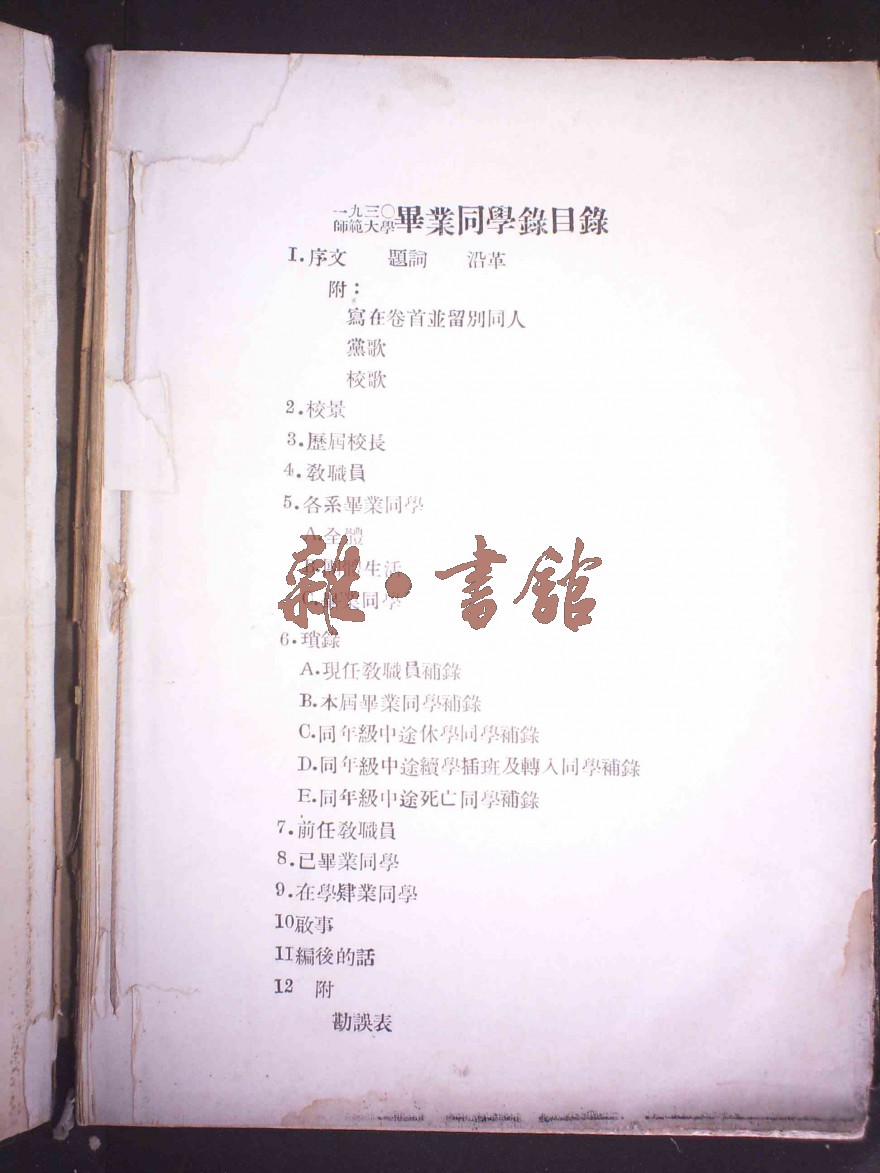 一九三〇
師範大學畢業同學錄目錄
I.序文 題詞 沿革
附：
寫在卷首並留別同人
黨歌
校歌
2.校景
3.歷屆校長
4.教職員
5.各系畢業同學
A.全體
生活
同學
雜·書館
6.瑣錄
A.現任教職員補錄
B.本屆畢業同學補錄
C.同年級中途休學同學補錄
D.同年級中途續學插班及轉入同學補錄
E.同年級中途死亡同學補錄
7.前任教職員
8.已畢業同學
9.在學肄業同學
10啟事
11編後的話
12 附
勘誤表